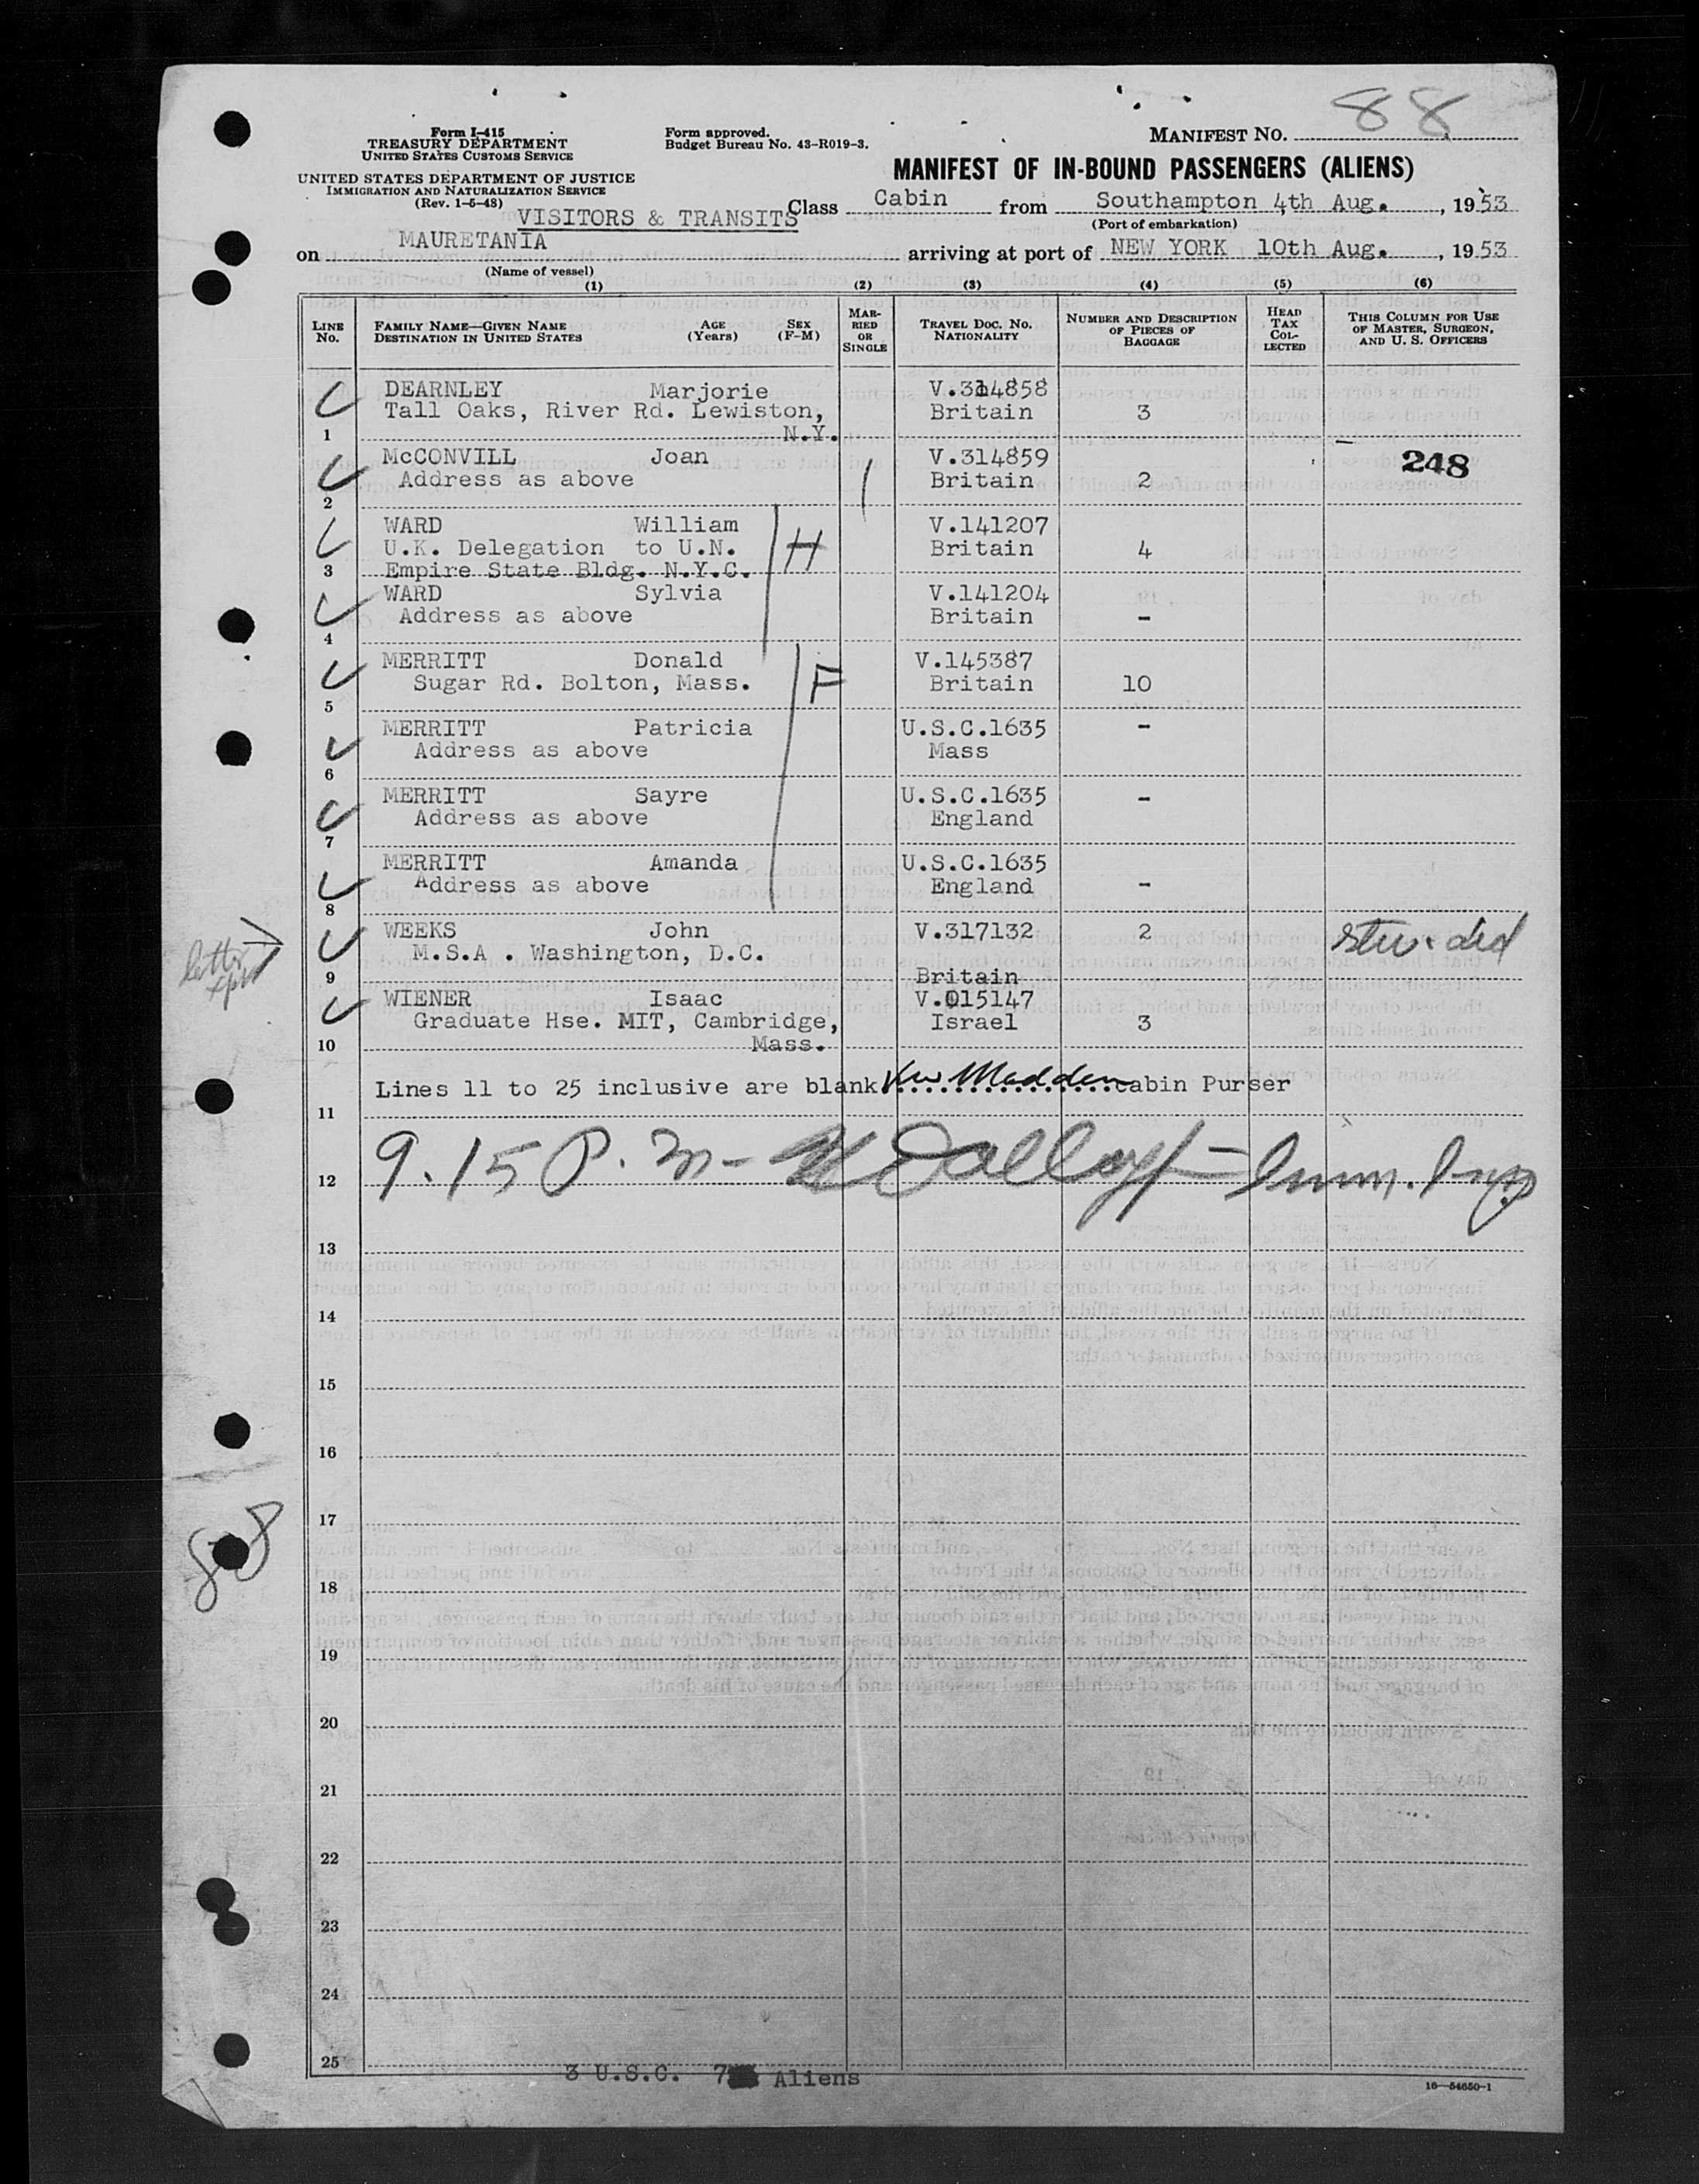 88
Form I-415
TREASURY DEPARTMENT
UNITED STATES CUSTOMS SERVICE
UNITED STATES DEPARTMENT OF JUSTICE
IMMIGRATION AND NATURALIZATION SERVICE
(Rev. 1-5-48)
Form approved.
Budget Bureau No. 43-R019-3.
MANIFEST NO.
MANIFEST OF IN-BOUND PASSENGERS (ALIENS)
VISITORS & TRANSITS Class Cabin from Southampton 4th Aug. , 1953
(Port of embarkation)
on MAURETANIA arriving at port of NEW YORK 10th Aug. , 1953
(Name of vessel)
(1) (2) (3) (4) (5) (6)
LINE NO. FAMILY NAME—GIVEN NAME DESTINATION IN UNITED STATES AGE (Years) SEX (F-M) MARRIED OR SINGLE TRAVEL DOC. NO. NATIONALITY NUMBER AND DESCRIPTION OF PIECES OF BAGGAGE HEAD TAX COLLECTED THIS COLUMN FOR USE OF MASTER, SURGEON, AND U. S. OFFICERS
DEARNLEY Marjorie V.314858
Tall Oaks, River Rd. Lewiston, Britain 3
1 N.Y.
McCONVILL Joan V.314859 248
Address as above Britain 2
2
WARD William V.141207
U.K. Delegation to U.N. H Britain 4
3 Empire State Bldg. N.Y.C.
WARD Sylvia V.141204
Address as above Britain -
4
MERRITT Donald V.145387
Sugar Rd. Bolton, Mass. F Britain 10
5
MERRITT Patricia U.S.C.1635 -
Address as above Mass
6
MERRITT Sayre U.S.C.1635 -
Address as above England
7
MERRITT Amanda U.S.C.1635
Address as above England -
8
WEEKS John V.317132 2
letter M.S.A . Washington, D.C.
9 Britain
WIENER Isaac V.015147
Graduate Hse. MIT, Cambridge, Israel 3
10 Mass.
Lines 11 to 25 inclusive are blank Madden cabin Purser
11
12 9.15 P.m - Imm. Insp
13
14
15
16
17
88
18
19
20
21
22
23
24
25
3 U.S.C. 7 Aliens
16—54650-1